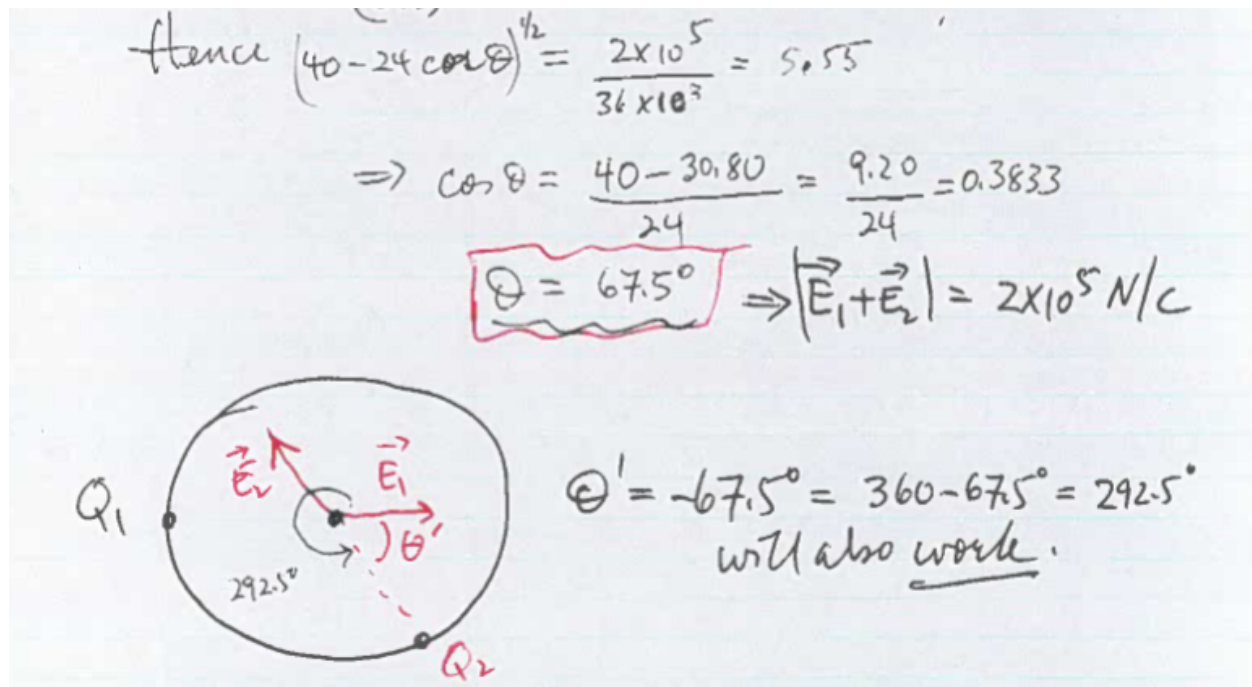 Hence (40-24 cos θ)^1/2 = 2x10^5 / 36x10^3 = 5.55
=> cos θ = 40-30.80 / 24 = 9.20 / 24 = 0.3833
θ = 67.5° => |E₁+E₂| = 2x10^5 N/C
E₂ E₁
Q₁ θ' = -67.5° = 360-67.5° = 292.5°
θ'
will also work.
292.5°
Q₂